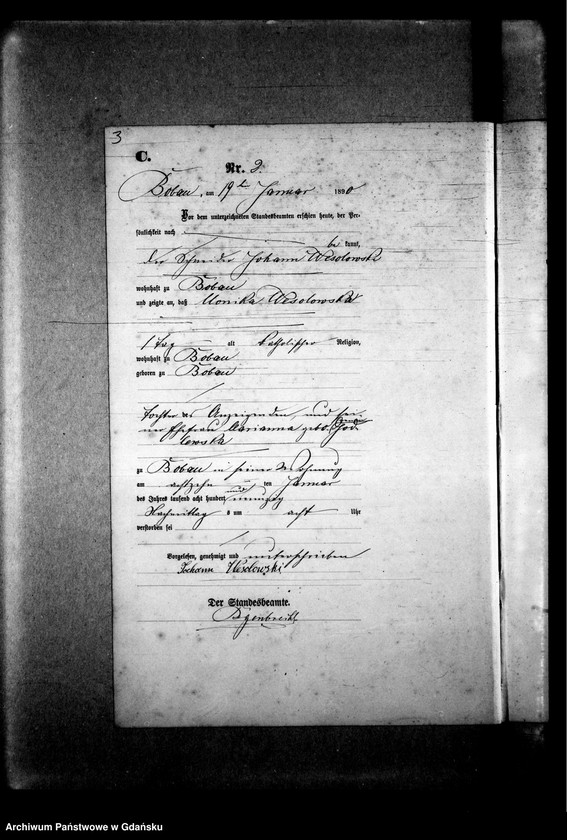 3
C.
Nr. 2.
Bobau, am 19ten Januar 1890
Vor dem unterzeichneten Standesbeamten erschien heute, der Per-
sönlichkeit nach
be kannt,
der Schneider Johann Wesolowski
wohnhaft zu Bobau
und zeigte an, daß Monika Wesolowska
1 Tag alt katholischer Religion,
wohnhaft zu Bobau
geboren zu Bobau
Tochter des Anzeigenden und sei-
ner Ehefrau Marianna geb.
lowska
zu Bobau in seiner Wohnung
am achtzehn ten Januar
des Jahres tausend acht hundert und neunzig
Nachmittag s um acht Uhr
verstorben sei
Vorgelesen, genehmigt und unterschrieben
Johann Wesolowski
Der Standesbeamte.